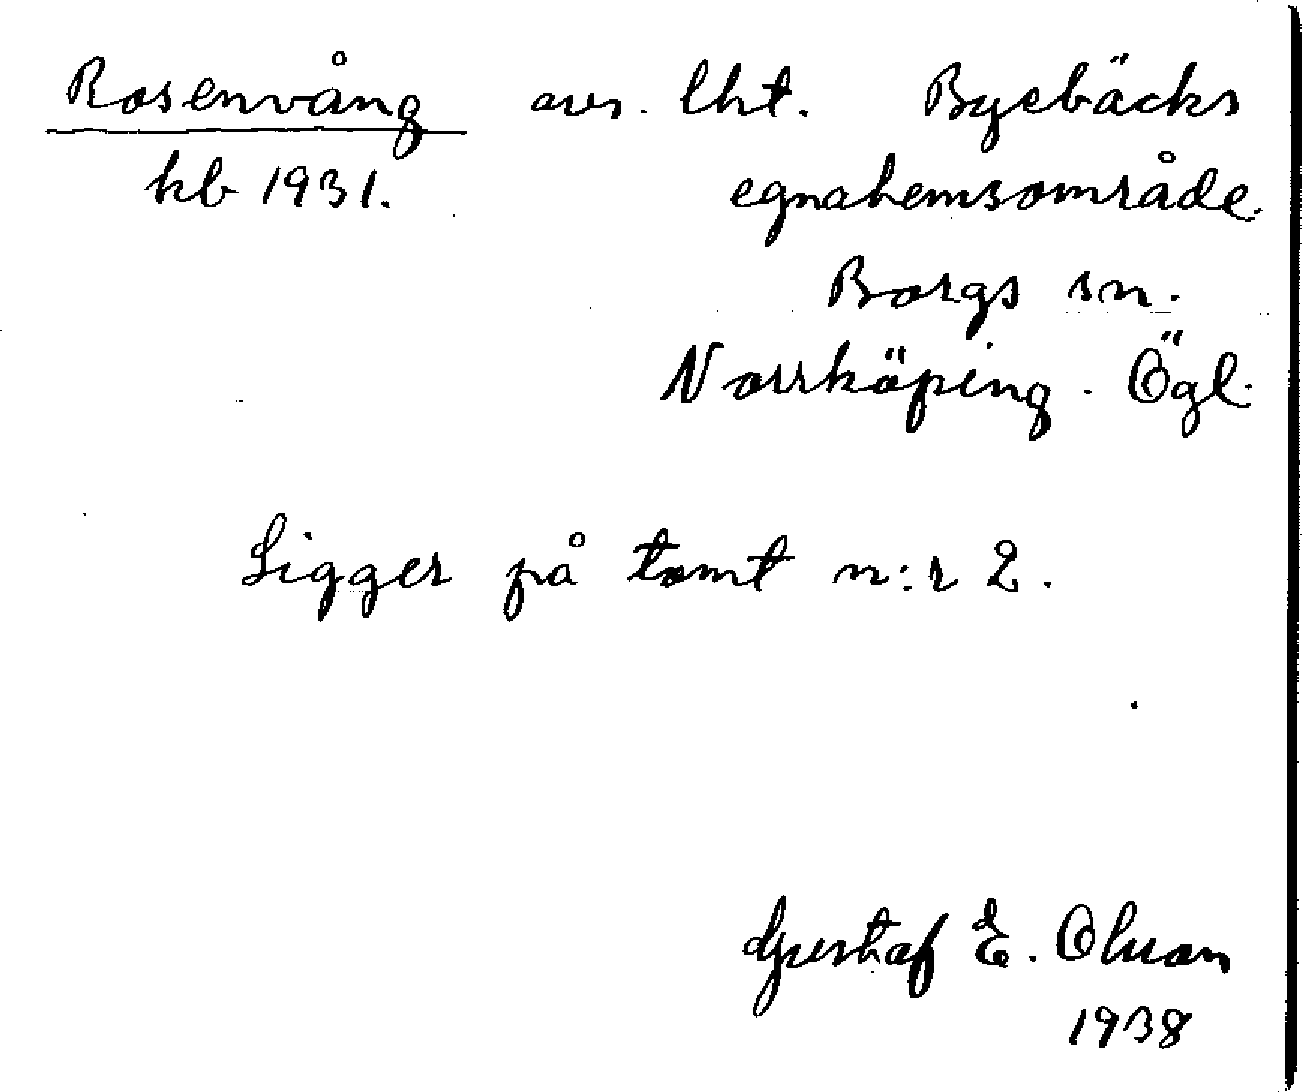 Rosenvång avs. lht. Byebäcks
kb 1931. egnahemsområde.
Borgs sn.
Norrköping. Ögl.
Ligger på tomt n:r 2.
Gustaf E. Olson
1938